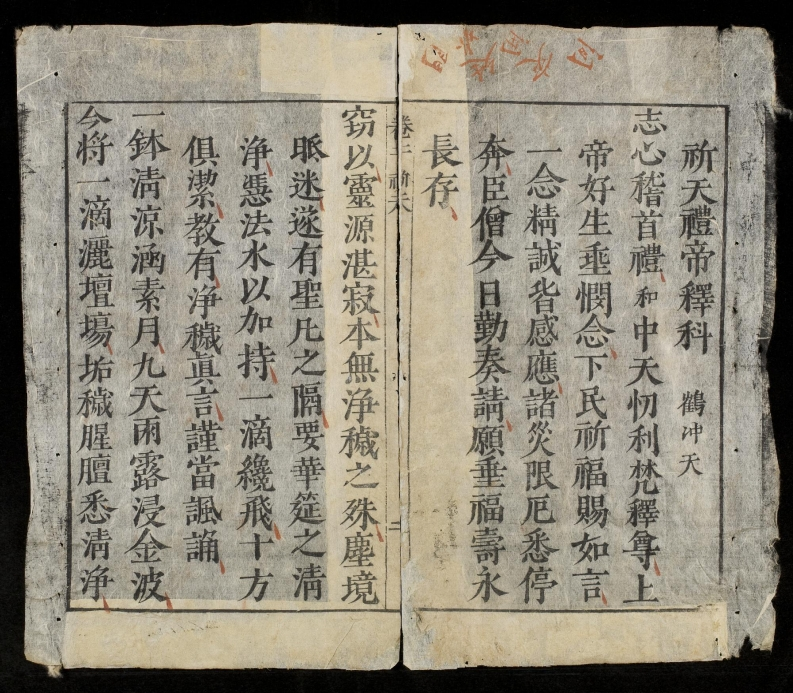 祈天禮帝釋科 鶴冲天
志心稽首禮和中天忉利梵釋尊上
帝好生垂憫念下民祈福賜如言
一念精誠皆感應諸災限厄悉停
奔臣僧今日勤奏請願垂福壽永
長存
卷二 祈天 一
窃以靈源湛寂本無浄穢之殊塵境
眽迷遂有聖凡之隔要華筵之清
浄慿法水以加持一滴纔飛十方
俱潔教有浄穢真言謹當諷誦
一鉢清凉涵素月九天雨露浸金波
今将一滴灑壇塲垢穢腥膻悉清浄